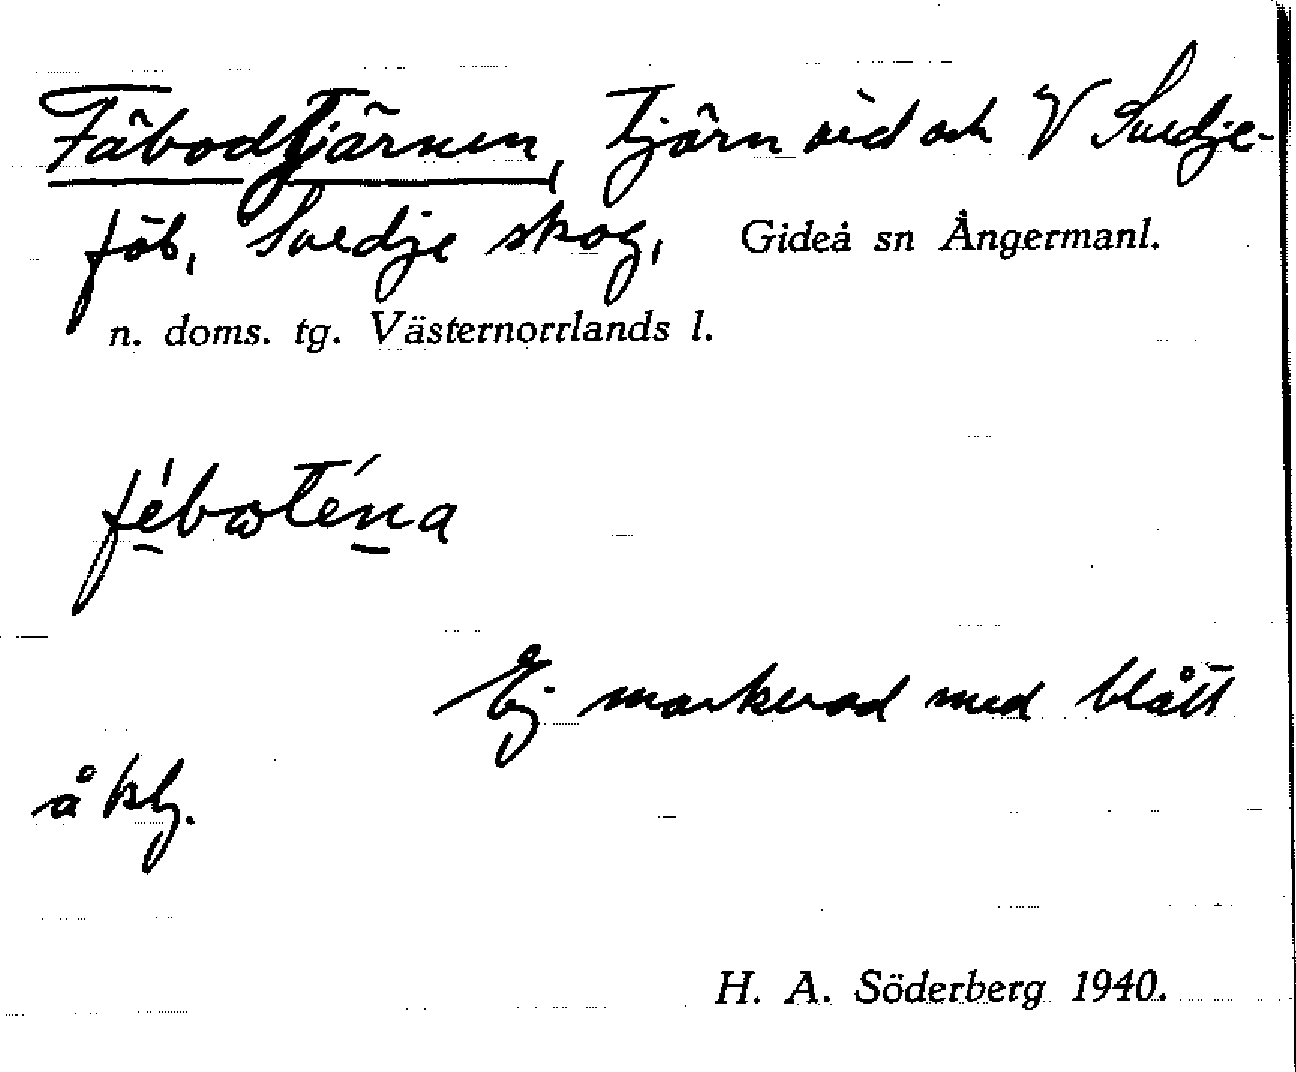 Fäbodtjärnen, tjärn vid och V Svedje-
fäb, Svedje skog, Gideå sn Ångermanl.
n. doms. tg. Västernorrlands l.
fébωténa
Ej markerad med blått
å kbl.
H. A. Söderberg 1940.